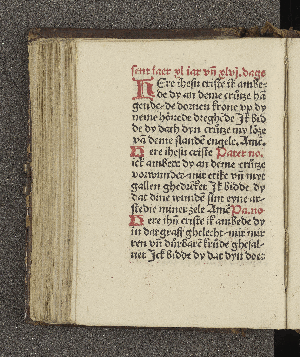 sent iaer xl iar vn̄ xlvj. dage
HEre ihesu criste ik anbe-
de dy an deme crüze hā
gende: de dornen krone vp dy
neme hövede dreghēde Jk bid
de dy dath dyn crüze my löze
vā deme slandē engele. Amē.
Here ihesu criste Pater no.
ick anbede dy an deme crüze
vorwundet: mit etike vn̄ myt
gallen ghedrēcket Jk bidde dy
dat dine wunden sint eyne ar-
stedie miner zele Amē Pa. no
Here ihū criste ik anbede dy
in dat graff ghelecht: mit mir
ren vn̄ dürbarē krüde ghesal-
uet Jck bidde dy dat dyn doet